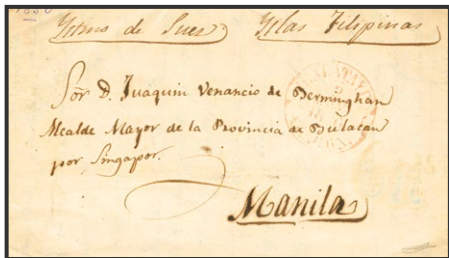 1850
Ystmo de Suez Yslas Filipinas
Sor. D. Juaquin Venancio de Bermingham
Alcalde Mayor de la Provincia de Bulacan
por Singapor.
Manila